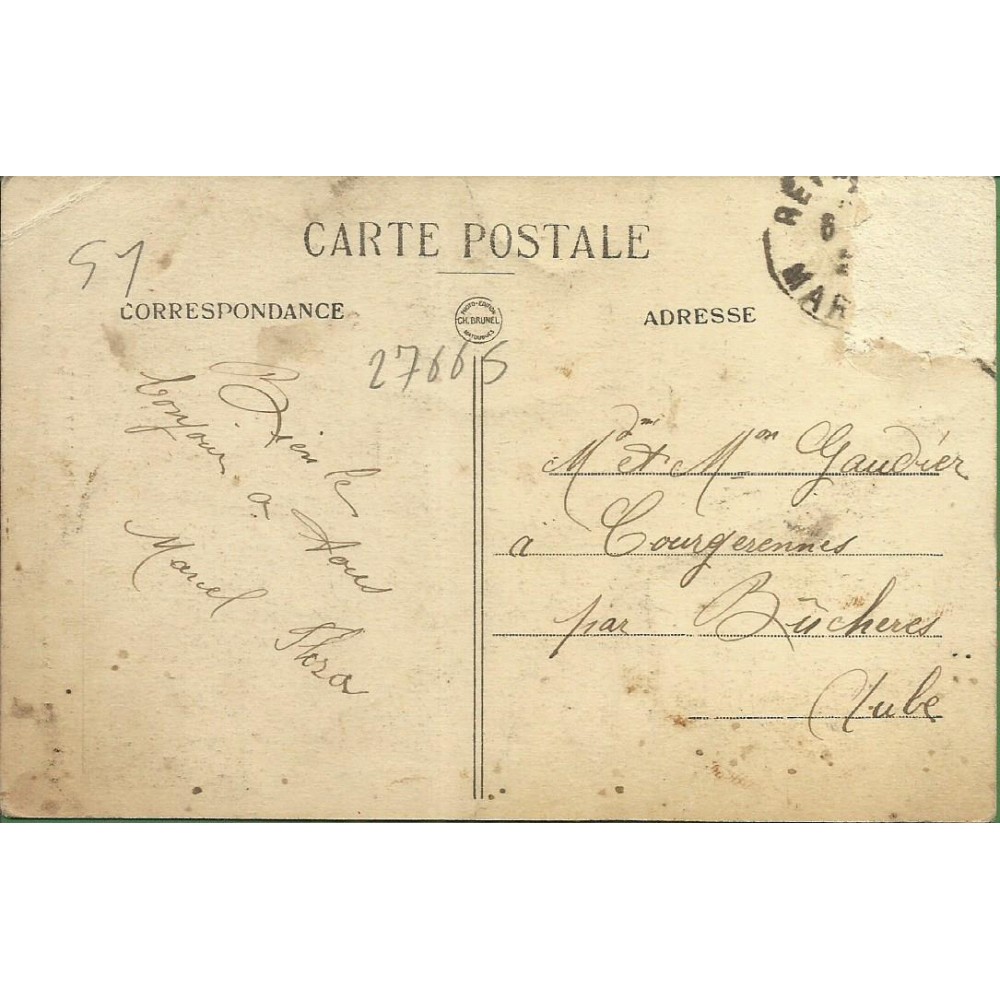 CARTE POSTALE
51
CORRESPONDANCE
PHOTO-EDITION
CH. BRUNEL
MATOUGUES
ADRESSE
6
MAR
27665
Bien le
bonjour a tous
Marcel Flora
Mdme et Mon Gaudier
a Courgerennes
par Bûcheres
Aube